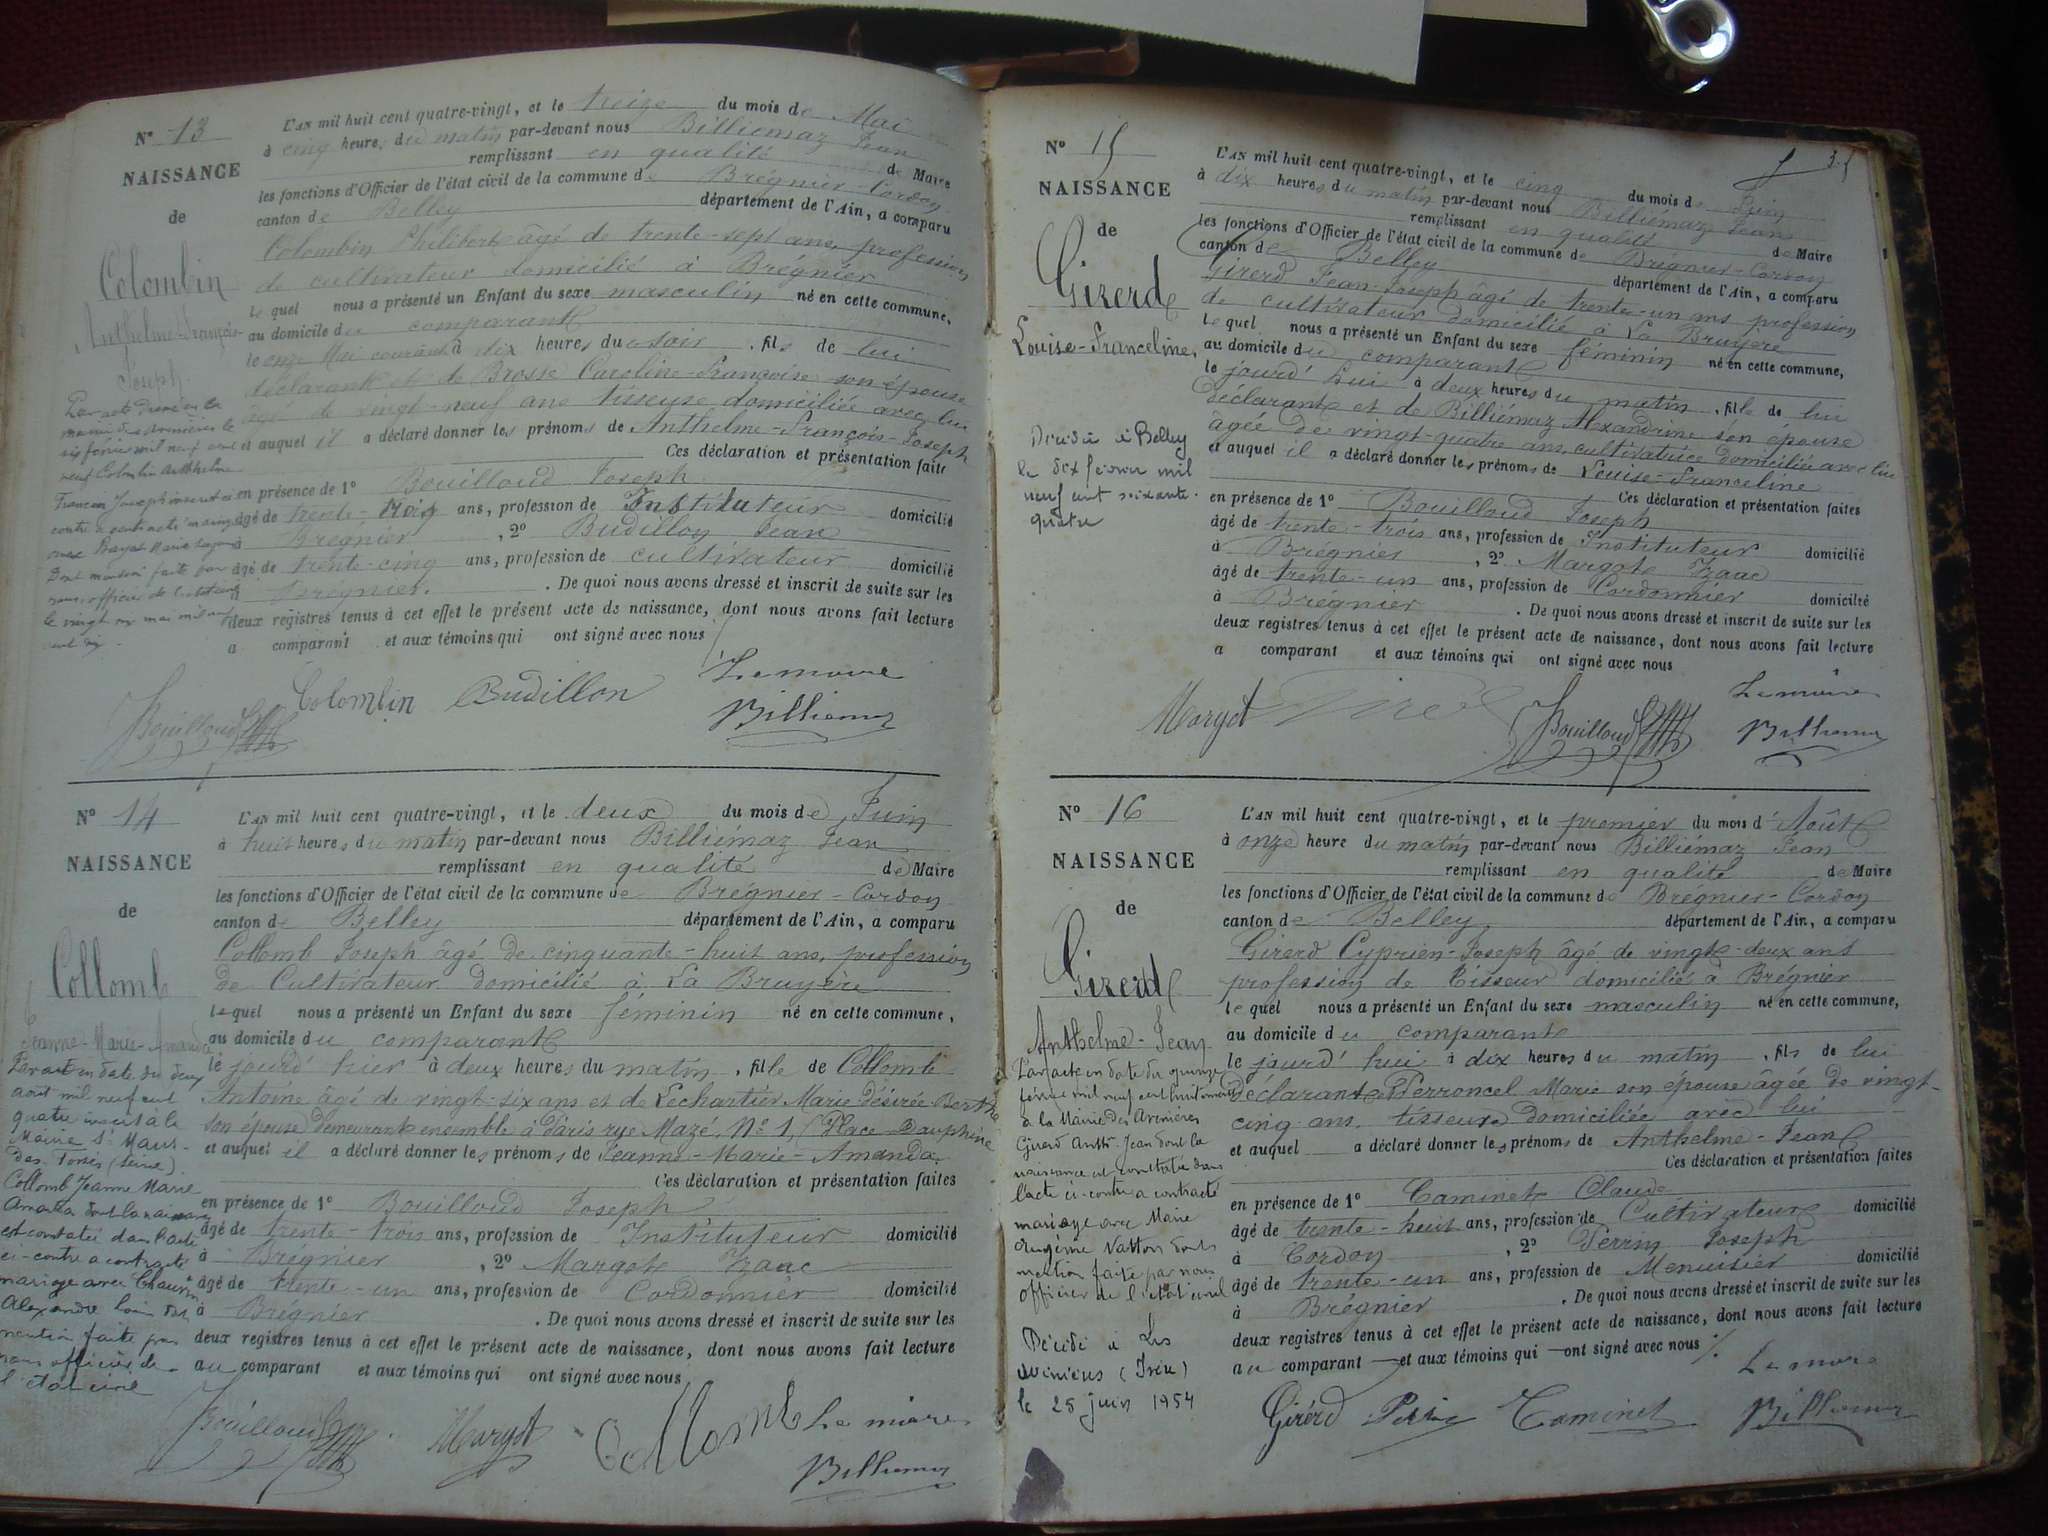 N° 13
NAISSANCE
de
Colombin
Anthelme-François-
Joseph
L'AN mil huit cent quatre-vingt, et le treize du mois de Mai
à cinq heures du matin par-devant nous Billiemaz Jean
remplissant en qualité de Maire
les fonctions d'Officier de l'état civil de la commune de Brégnier-Cordon
canton de Belley département de l'Ain, a comparu
Colombin Philibert âgé de trente-sept ans, profession
de cultivateur domicilié à Brégnier
lequel nous a présenté un Enfant du sexe masculin né en cette commune,
au domicile du comparant
le onze Mai courant à dix heures du soir, fils de lui
déclarant et de Brosse Caroline-Françoise son épouse
âgé de vingt-neuf ans tisseuse domiciliée avec lui
et auquel il a déclaré donner les prénoms de Anthelme-François-Joseph
Ces déclaration et présentation faites
en présence de 1° Bouilloud Joseph
âgé de trente-trois ans, profession de Instituteur domicilié
à Brégnier, 2° Budillon Jean
âgé de trente-cinq ans, profession de cultivateur domicilié
à Brégnier. De quoi nous avons dressé et inscrit de suite sur les
deux registres tenus à cet effet le présent acte de naissance, dont nous avons fait lecture
a comparant et aux témoins qui ont signé avec nous
Le maire
Bouilloud Colombin Budillon Billiemaz
N° 14
NAISSANCE
de
Collomb
Jeanne-Marie-Amanda
Par acte en date du deux
aout mil neuf cent
quatre inscrit à la
Mairie St Maur-
des-Fossés (Seine).
Collomb Jeanne Marie
Amanda dont la naissance
est constatée dans l'acte
ci-contre a contracté
mariage avec Chauvin
Alexandre Louis dont
mention faite par
nous officier de
l'état civil
L'AN mil huit cent quatre-vingt, et le deux du mois de Juin
à huit heures du matin par-devant nous Billiémaz Jean
remplissant en qualité de Maire
les fonctions d'Officier de l'état civil de la commune de Brégnier-Cordon
canton de Belley département de l'Ain, a comparu
Collomb Joseph âgé de cinquante-huit ans, profession
de Cultivateur domicilié à La Bruyère
lequel nous a présenté un Enfant du sexe féminin né en cette commune,
au domicile du comparant
le jourd'hier à deux heures du matin, fille de Collomb
Antoine âgé de vingt-six ans et de Lechartier Marie Désirée Berthe
son épouse demeurant ensemble à Paris rue Mazé, N° 1, (Place Dauphine
et auquel il a déclaré donner les prénoms de Jeanne-Marie-Amanda.
Ces déclaration et présentation faites
en présence de 1° Bouilloud Joseph
âgé de trente-trois ans, profession de Instituteur domicilié
à Brégnier, 2° Margot Izaac
âgé de trente-un ans, profession de Cordonnier domicilié
à Brégnier. De quoi nous avons dressé et inscrit de suite sur les
deux registres tenus à cet effet le présent acte de naissance, dont nous avons fait lecture
au comparant et aux témoins qui ont signé avec nous
Bouilloud Margot Collomb Le maire
Billiemaz
35
N° 15
NAISSANCE
de
Girerd
Louise-Franceline,
Décédée à Belley
le dix février mil
neuf cent soixante-
quatre
L'AN mil huit cent quatre-vingt, et le cinq du mois de Juin
à dix heures du matin par-devant nous Billiémaz Jean
remplissant en qualité de Maire
les fonctions d'Officier de l'état civil de la commune de Brégnier-Cordon
canton de Belley département de l'Ain, a comparu
Girerd Jean-Joseph âgé de trente-un ans profession
de cultivateur domicilié à La Bruyère
lequel nous a présenté un Enfant du sexe féminin né en cette commune,
au domicile du comparant
le jourd'hui à deux heures du matin, fille de lui
déclarant et de Billiémaz Alexandrine son épouse
âgée de vingt-quatre ans, cultivatrice domiciliée avec lui
et auquel il a déclaré donner les prénoms de Louise-Franceline
Ces déclaration et présentation faites
en présence de 1° Bouilloud Joseph
âgé de trente-trois ans, profession de Instituteur domicilié
à Brégnier, 2° Margot Izaac
âgé de trente-un ans, profession de Cordonnier domicilié
à Brégnier. De quoi nous avons dressé et inscrit de suite sur les
deux registres tenus à cet effet le présent acte de naissance, dont nous avons fait lecture
a comparant et aux témoins qui ont signé avec nous
Le maire
Margot Bouilloud Billiemaz
N° 16
NAISSANCE
de
Girerd
Anthelme-Jean
Par acte en date du quinze
février mil neuf cent huit
à la Mairie des Avenières
Girerd Anth. Jean dont la
naissance est constatée dans
l'acte ci-contre a contracté
mariage avec Marie
mention faite par nous
officier de l'état civil
Décédé à Les
Avenières (Isère)
le 25 juin 1954
L'AN mil huit cent quatre-vingt, et le premier du mois d'Août
à onze heure du matin par-devant nous Billiémaz Jean
remplissant en qualité de Maire
les fonctions d'Officier de l'état civil de la commune de Brégnier-Cordon
canton de Belley département de l'Ain, a comparu
Girerd Cyprien-Joseph âgé de vingt-deux ans
profession de Tisseur domicilié à Brégnier
lequel nous a présenté un Enfant du sexe masculin né en cette commune,
au domicile du comparant
le jourd'hui à dix heures du matin, fils de lui
déclarant Perroncel Marie son épouse âgée de vingt-
cinq ans, tisseuse domiciliée avec lui
et auquel a déclaré donner les prénoms de Anthelme-Jean
Ces déclaration et présentation faites
en présence de 1° Caminet Claude
âgé de trente-huit ans, profession de Cultivateur domicilié
à Cordon, 2° Perrin Joseph
âgé de trente-un ans, profession de Menuisier domicilié
à Brégnier. De quoi nous avons dressé et inscrit de suite sur les
deux registres tenus à cet effet le présent acte de naissance, dont nous avons fait lecture
au comparant et aux témoins qui ont signé avec nous
Le maire
Girerd Perrin Caminet Billiemaz